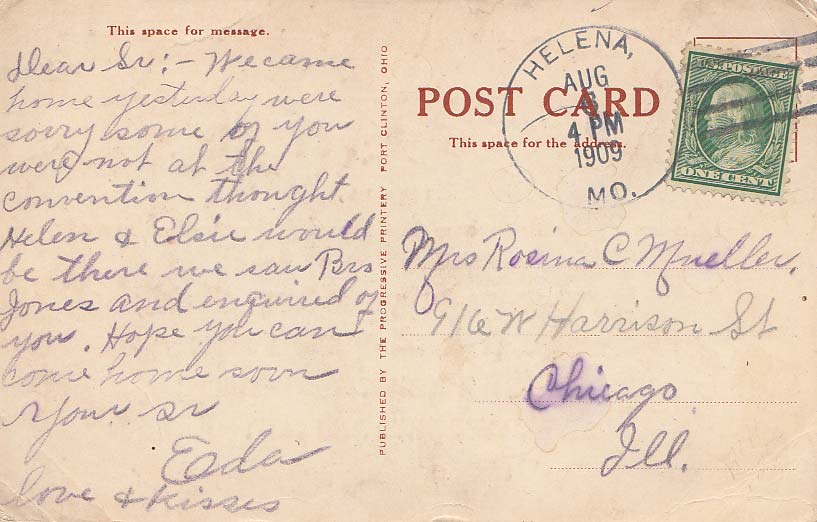 This space for message.
Dear Sr:- We came
home yesterday were
sorry some of you
were not at the
convention thought
Helen & Elsie would
be there we saw Bro
Jones and enquired of
you. Hope you can
come home soon
Your sr
Eda
love & kisses
PUBLISHED BY THE PROGRESSIVE PRINTERY PORT CLINTON, OHIO
HELENA,
AUG
6
4 PM
1909
MO.
POST CARD
This space for the address.
U.S. POSTAGE
ONE CENT
Mrs Rosina C Mueller.
916 W Harrison St
Chicago
Ill.